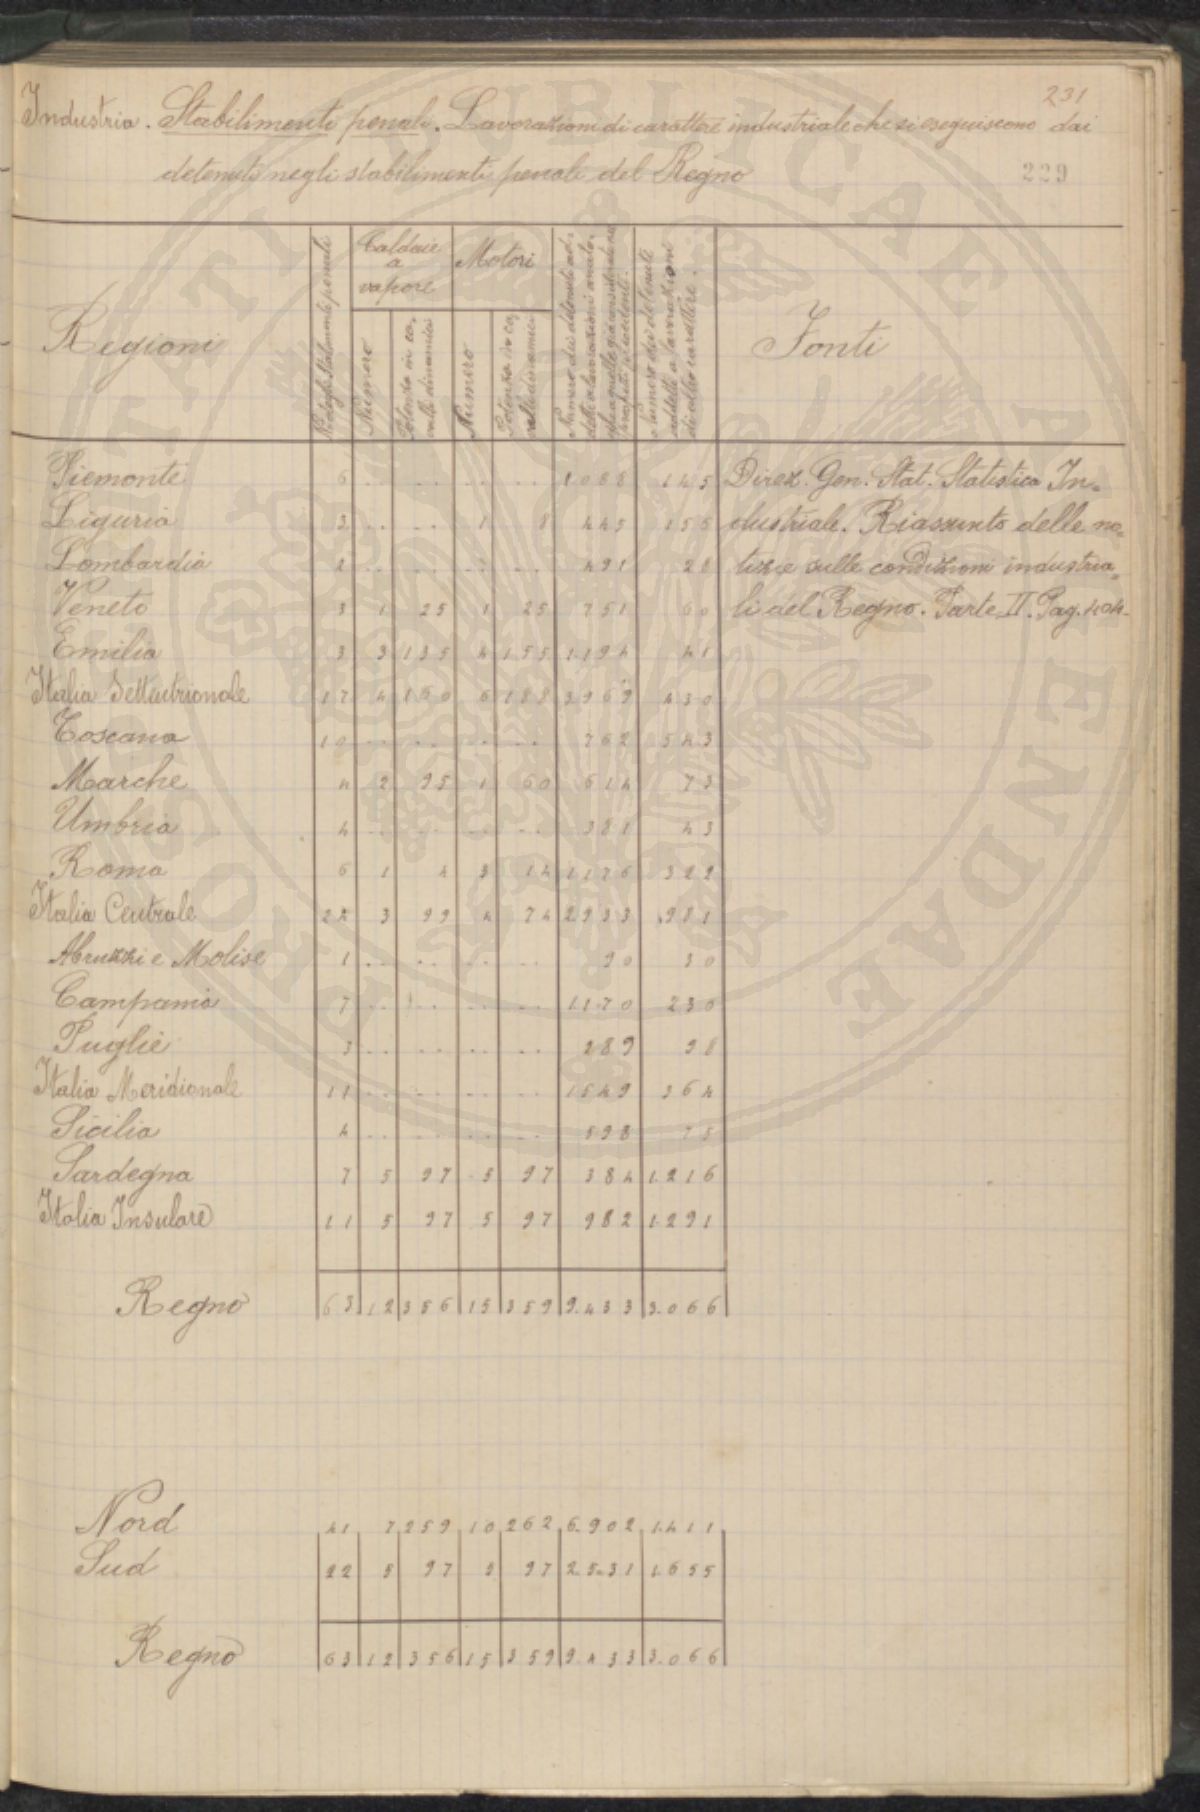 231
Industria. Stabilimenti penali. Lavorazioni di carattere industriale che si eseguiscono dai
detenuti negli stabilimenti penali del Regno
229
Regioni
Caldaie a vapore
Numero
Potenza in cavalli dinamici
Motori
Numero
Potenza in cavalli dinamici
Numero dei detenuti addetti a lavorazioni
Numero dei detenuti addetti a lavorazioni di altro carattere.
Fonti
Piemonte 6 .. .. .. .. 1088 145 Direz. Gen. Stat. Statistica In-
Liguria 3 .. .. 1 8 445 156 dustriale. Riassunto delle no-
Lombardia 2 .. .. 1 .. 491 28 tizie sulle condizioni industria-
Veneto 3 1 25 1 25 751 60 li del Regno. Parte II. Pag. 404.
Emilia 3 3 135 4 155 1.194 41
Italia Settentrionale 17 4 160 6 188 3969 430
Toscana 10 .. .. .. .. 762 543
Marche 4 2 95 1 60 614 73
Umbria 4 .. .. .. .. 381 43
Roma 6 1 4 3 14 1176 322
Italia Centrale 24 3 99 4 74 2933 981
Abruzzi e Molise 1 .. .. .. .. 90 30
Campania 7 .. .. .. .. 1.170 230
Puglie 3 .. .. .. .. 289 98
Italia Meridionale 11 .. .. .. .. 1549 364
Sicilia 4 .. .. .. .. 598 75
Sardegna 7 5 97 5 97 384 1.216
Italia Insulare 11 5 97 5 97 982 1.291
Regno 63 12 356 15 359 9.433 3.066
Nord 41 7 259 10 262 6.902 1.411
Sud 22 5 97 5 97 2.531 1.655
Regno 63 12 356 15 359 9.433 3.066
PROSPERITATI PUBLICAE AUGENDAE